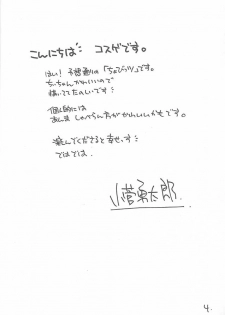 こんにちは‥ コスゲです。
はい!予想通りの「ちょびっツ」です。
ちぃちゃんかわいいので
描いてて たのしいです‥
個人的には
あんま しゃべらん方が かわいいかもです。
遊んでくださると幸せっす‥
ではでは.
小菅勇太郎
4.